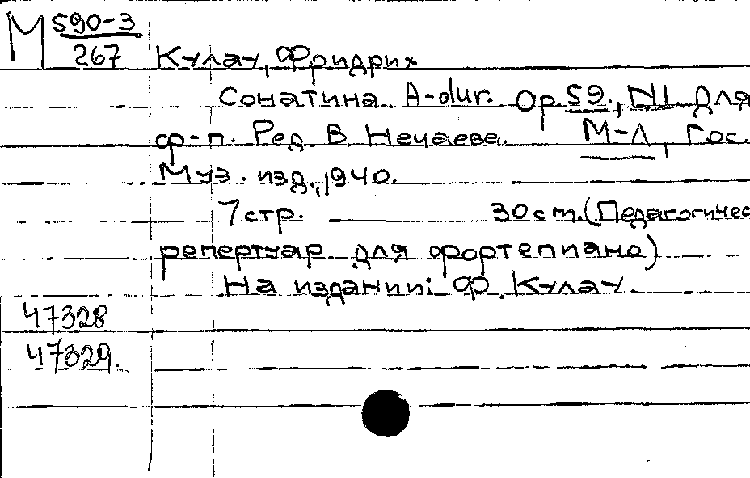 М 590-3
267 Кулау, Фридрих
Сонатина A-dur. Op 59., N1 Для
ф-п. Ред. В Нечаева. М-Л, Гос.
Муз. изд., 1940.
7 стр. 30 cm. (Педагогичес
репертуар для фортепиано)
На издании: Ф. Кулау.
47328
47329.